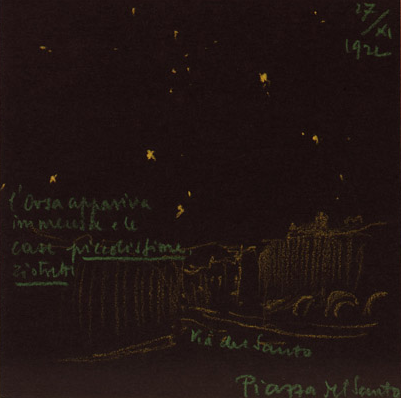 27/XI
1922
l'Orsa appariva
immensa e le
case piccolissime
Via del Santo
Piazza del Santo